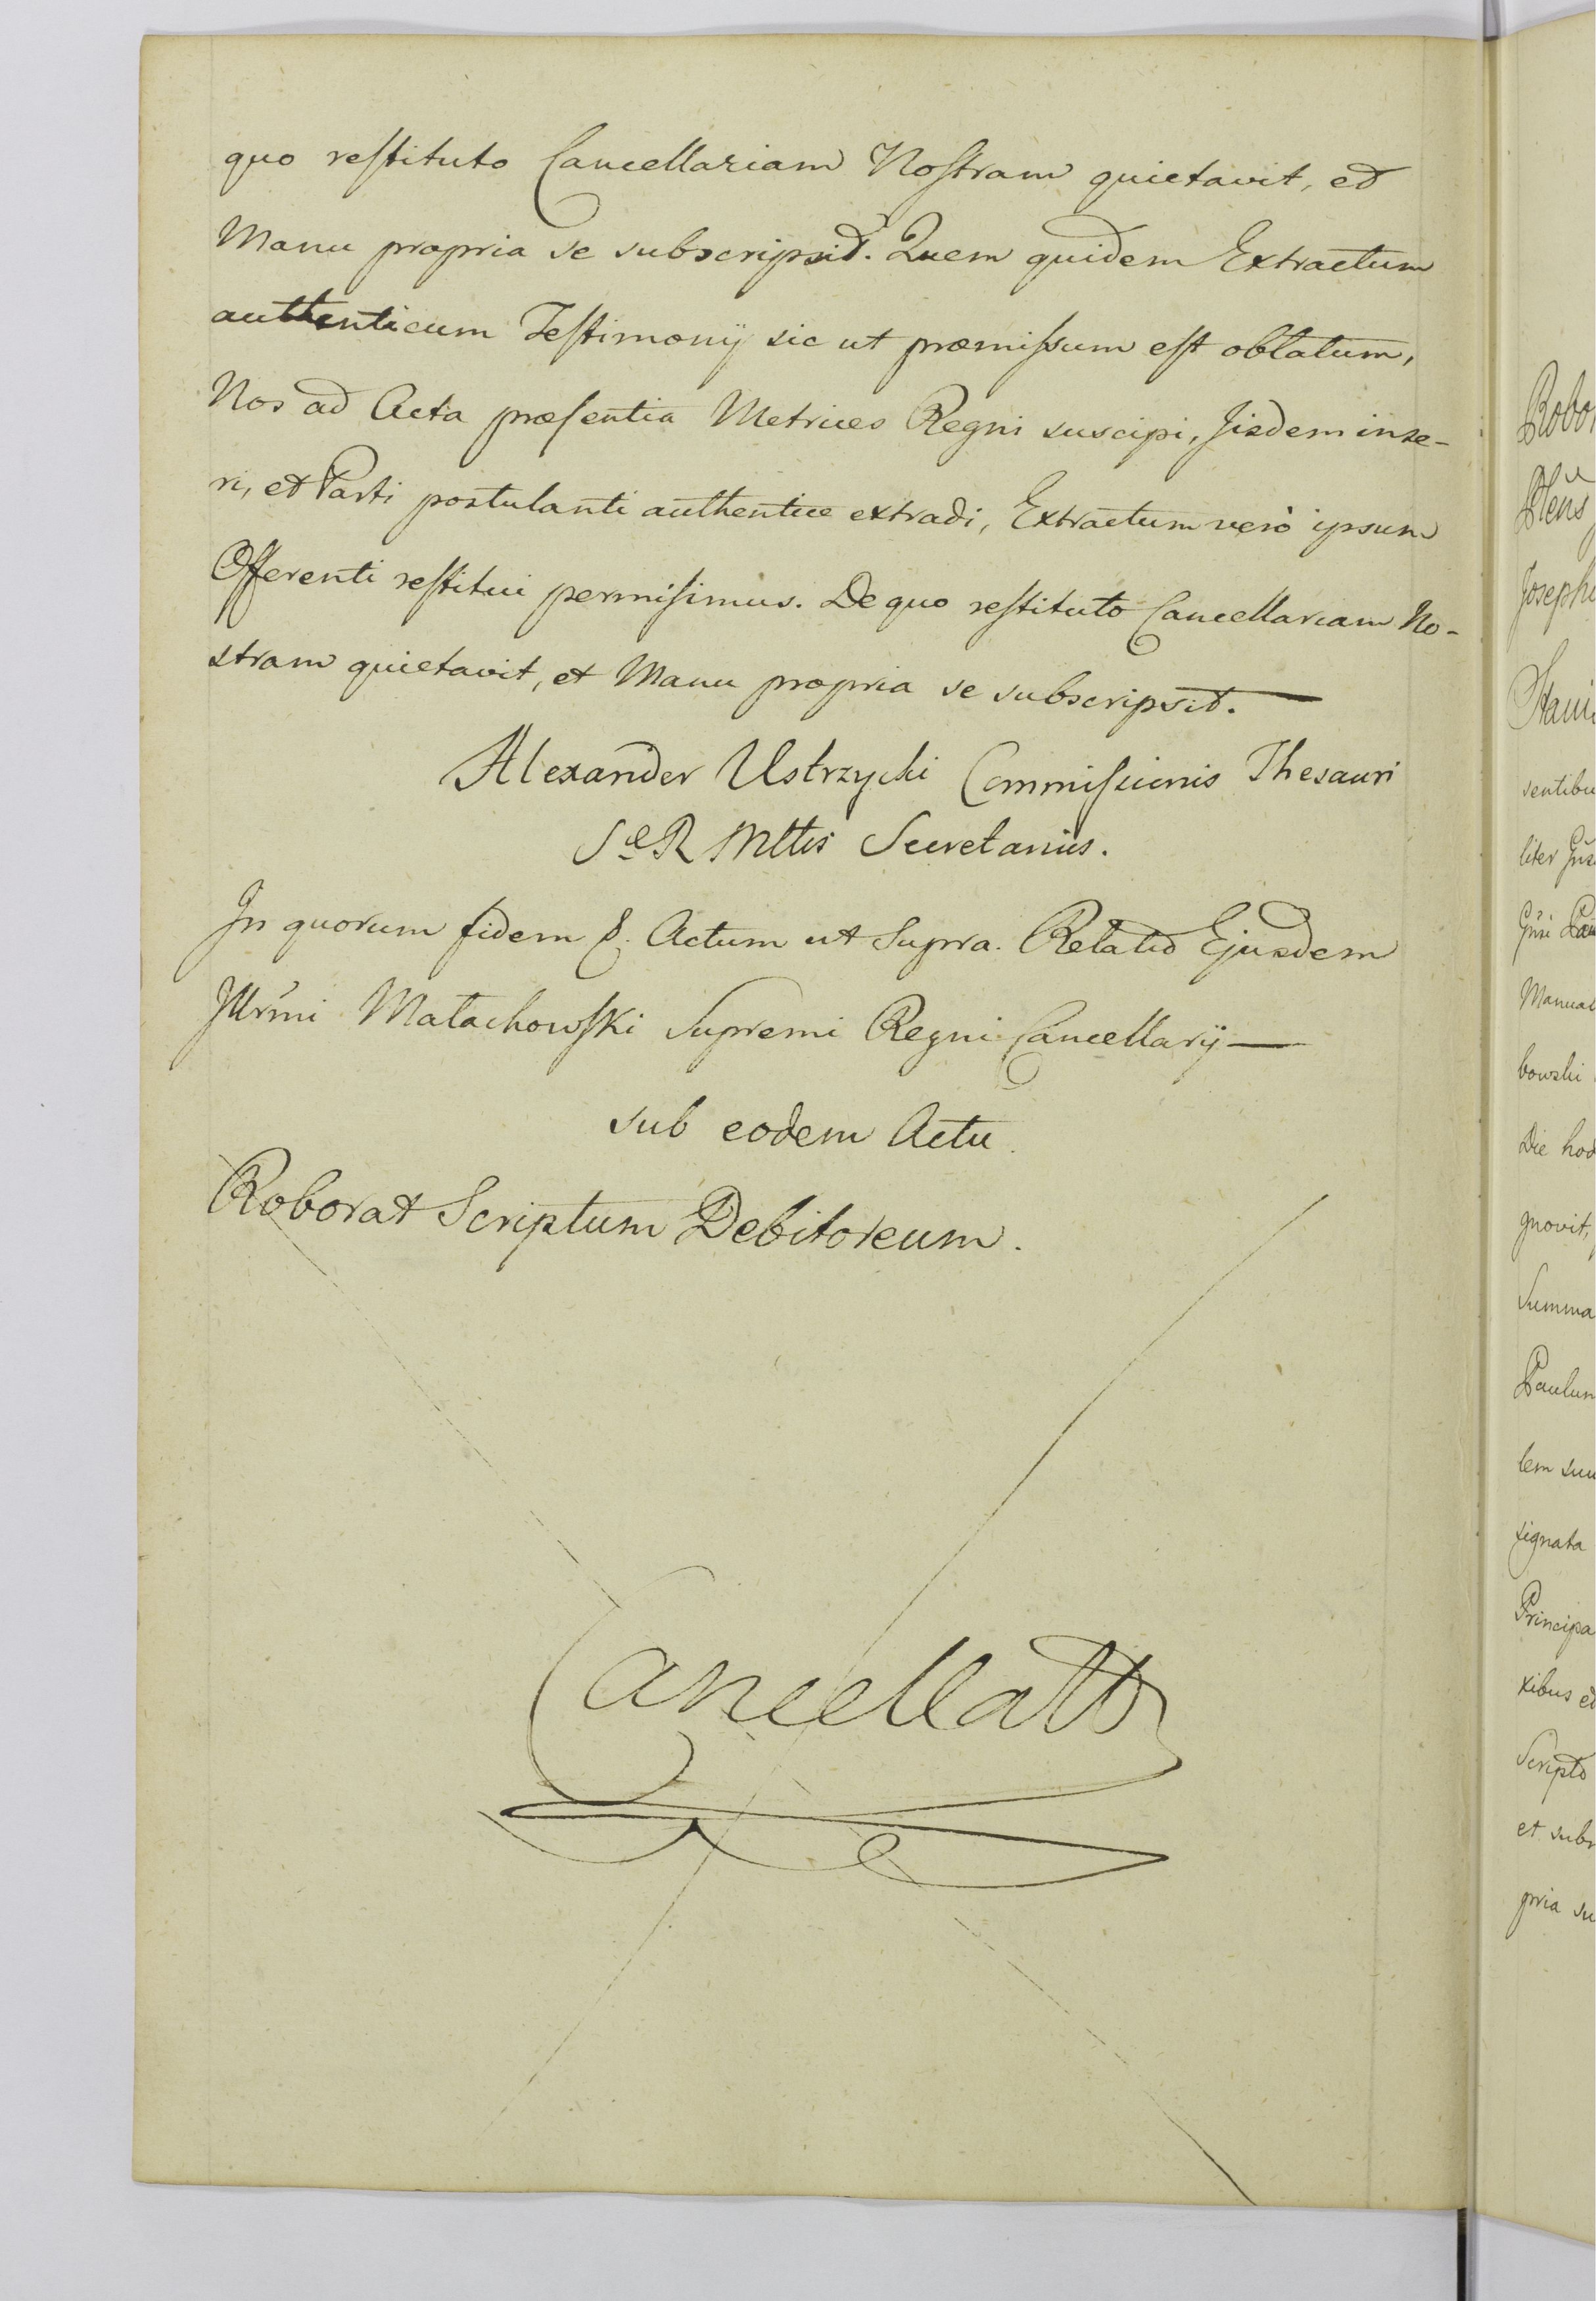 quo restituto Cancellariam Nostram quietavit, et
Manu propria se subscripsit. Quem quidem Extractum
authenticum Testimonij sic ut præmissum est oblatum,
Nos ad Acta præsentia Metrices Regni suscipi, Jisdem inse-
ri, et Parti postulanti authentice extradi, Extractum verò ipsum
Offerenti restitui permisimus. De quo restituto Cancellariam No-
stram quietavit, et Manu propria se subscripsit.
Alexander Ustrzycki Commissionis Thesauri
SæR Mttis Secretarius.
In quorum fidem &. Actum ut Supra. Relatio Ejusdem
Jllrmi Małachowski Supremi Regni Cancellarij
sub eodem Actu
Roborat Scriptum Debitoreum.
Cancellatt
Robor
Josephu
Stani
sentibu
liter
Manual
bowski
Die hod
gnovit,
Summa
Paulum
lem suu
signata
Principa
xibus et
Scripto
et subs
pria su